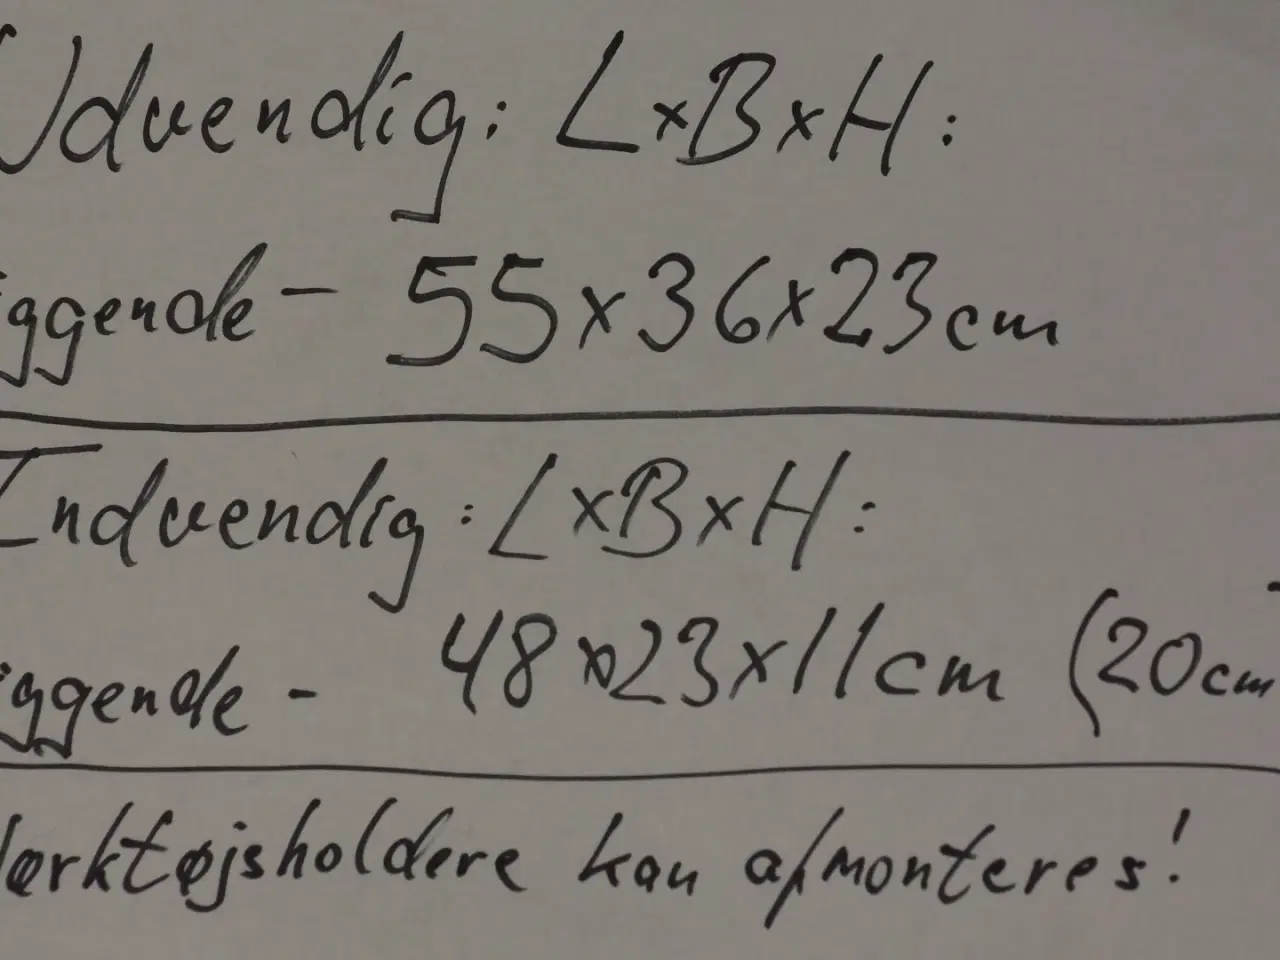 Udvendig: L x B x H:
iggende - 55 x 36 x 23 cm
Indvendig: L x B x H:
iggende - 48 x 23 x 11 cm (20 cm
Værktøjsholdere kan afmonteres!